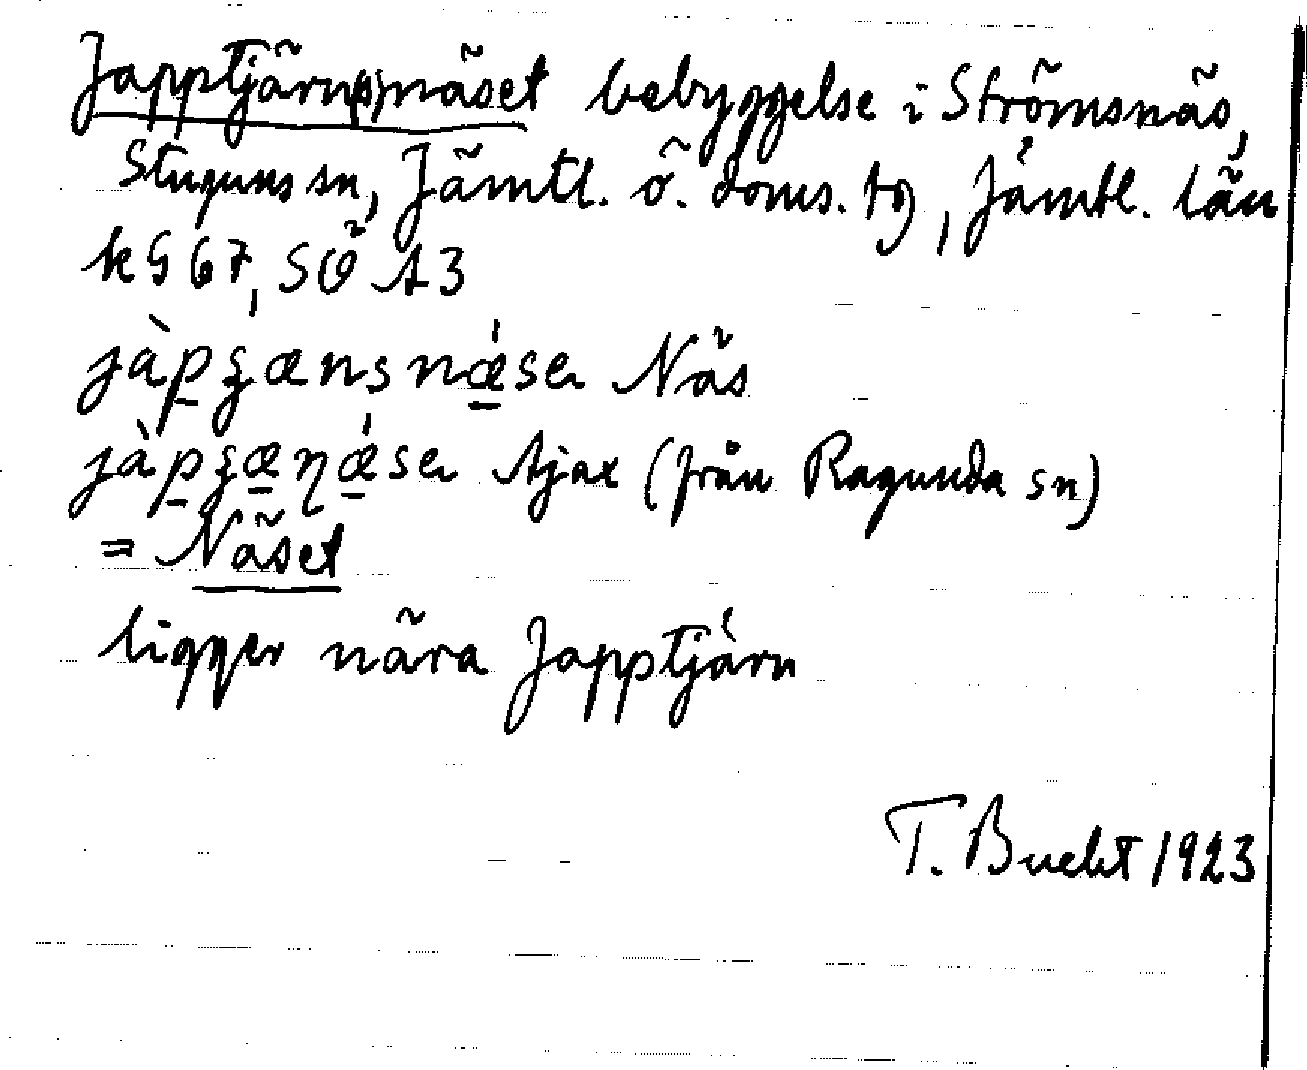 Japptjärn(s)näset bebyggelse i Strömsnäs,
Stuguns sn, Jämtl. ö. doms. tg, Jämtl. län
k G 67, SÖ A3
jàp̲ʒænsnǽ̲se Näs
jàp̲ʒæ̲ɳǽ̲se Ajax (från Ragunda sn)
= Näset
ligger nära Japptjärn
T. Bucht 1923